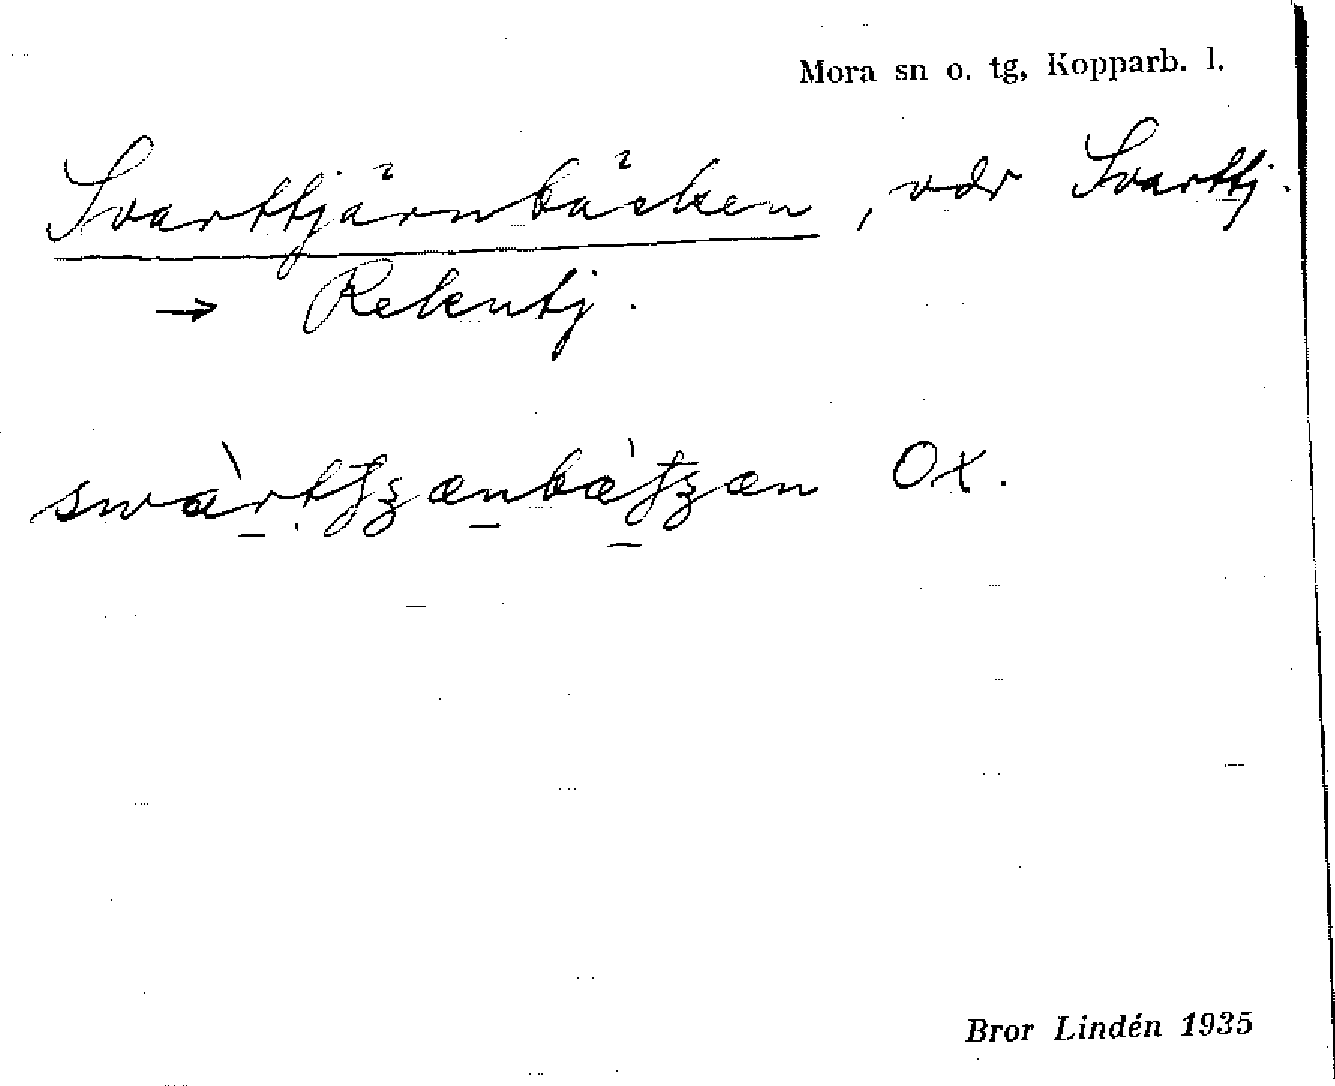 Mora sn o. tg, Kopparb. l.
Svarttjärnbäcken, vdr Svarttj.
→ Rekutj.
swàrtʃʒænbæ̀ʃʒæn Ox.
Bror Lindén 1935